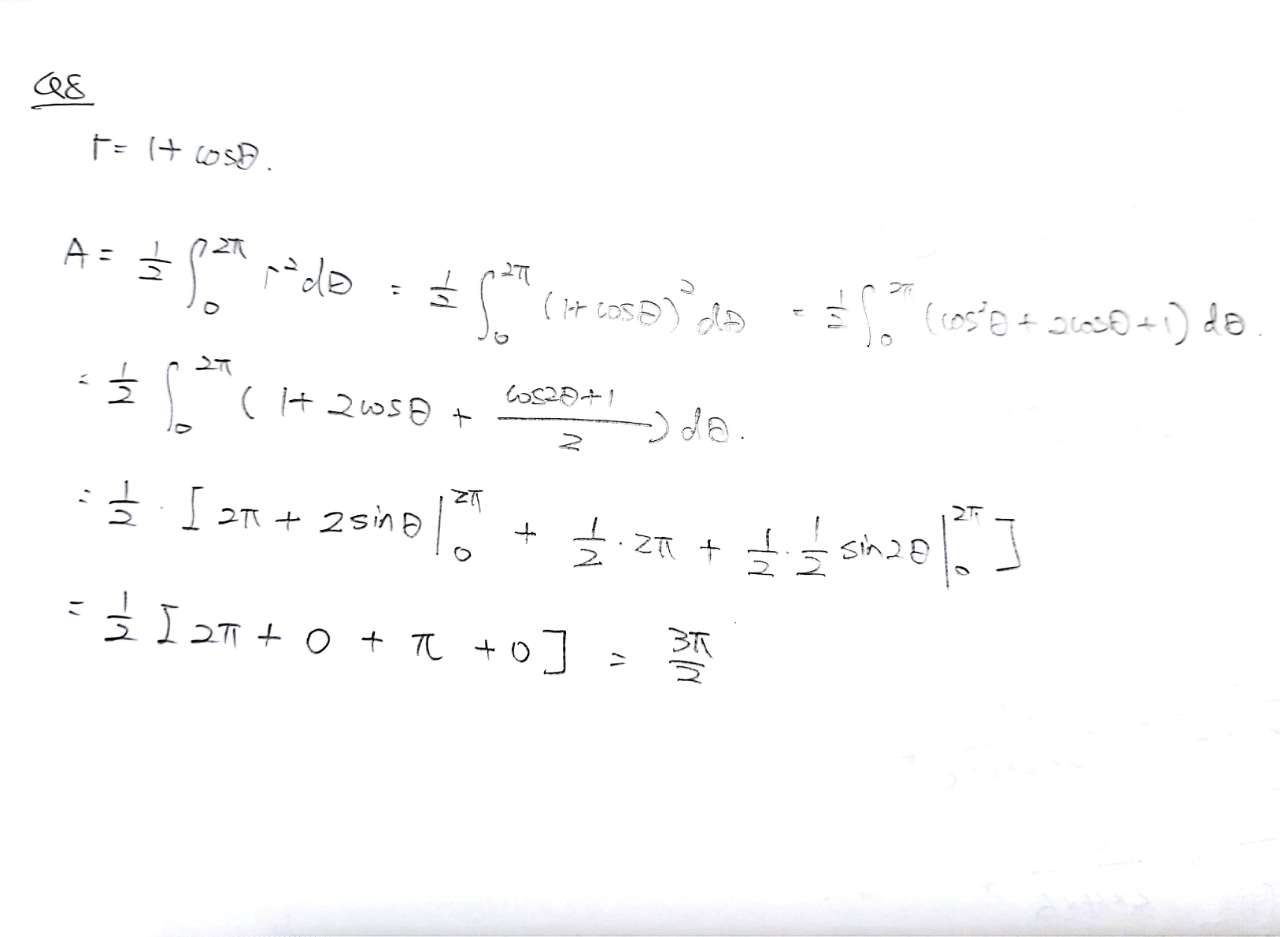 Q8
r = 1 + cosθ.
A = 1/2 ∫₀^2π r² dθ = 1/2 ∫₀^2π (1 + cosθ)² dθ = 1/2 ∫₀^2π (cos²θ + 2cosθ + 1) dθ.
= 1/2 ∫₀^2π (1 + 2cosθ + (cos2θ + 1)/2) dθ.
= 1/2 · [2π + 2sinθ |₀^2π + 1/2 · 2π + 1/2 · 1/2 sin2θ |₀^2π]
= 1/2 [2π + 0 + π + 0] = 3π/2